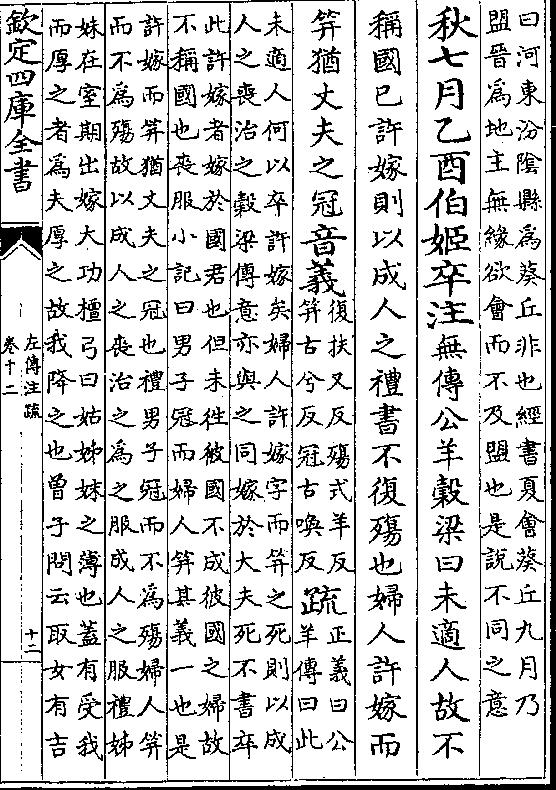 曰河東汾陰縣為葵丘非也經書夏會葵丘九月乃
盟晉為地主無緣欲會而不及盟也是說不同之意
秋七月乙酉伯姬卒注無傳公羊穀梁曰未適人故不
稱國已許嫁則以成人之禮書不復殤也婦人許嫁而
笄猶丈夫之冠音義復扶又反殤式羊反
笄古兮反冠古喚反疏正義曰公
羊傳曰此
未適人何以卒許嫁矣婦人許嫁字而笄之死則以成
人之喪治之穀梁傳意亦與之同嫁於大夫死不書卒
此許嫁者嫁於國君也但未往彼國不成彼國之婦故
不稱國也喪服小記曰男子冠而婦人笄其義一也是
許嫁而笄猶丈夫之冠也禮男子冠而不為殤婦人笄
而不為殤故以成人之喪治之為之服成人之服禮姊
妹在室期出嫁大功檀弓曰姑姊妹之薄也蓋有受我
而厚之者為夫厚之故我降之也曾子問云取女有吉
欽定四庫全書
左傳注疏
卷十二
十二